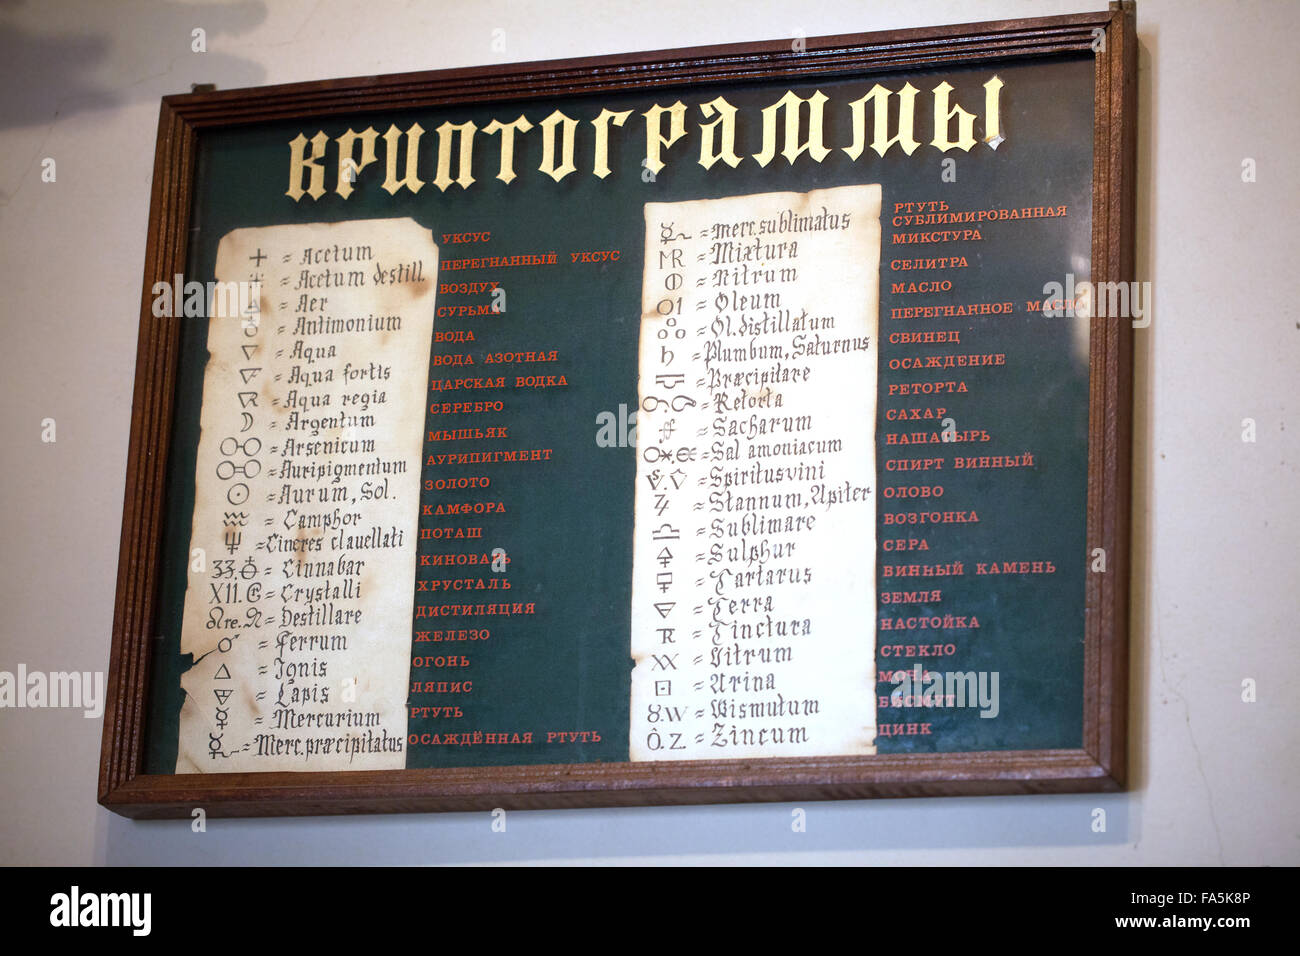 КРИПТОГРАММЫ
= Acetum УКСУС
= Acetum destill. ПЕРЕГНАННЫЙ УКСУС
= Aer ВОЗДУХ
= Antimonium СУРЬМА
= Aqua ВОДА
= Aqua fortis ВОДА АЗОТНАЯ
= Aqua regia ЦАРСКАЯ ВОДКА
= Argentum СЕРЕБРО
= Arsenicum МЫШЬЯК
= Auripigmentum АУРИПИГМЕНТ
= Aurum, Sol. ЗОЛОТО
= Camphor КАМФОРА
= Cineres clavellati ПОТАШ
33. = Cinnabar КИНОВАРЬ
XII. = Crystalli ХРУСТАЛЬ
= Destillare ДИСТИЛЯЦИЯ
♂ = Ferrum ЖЕЛЕЗО
= Ignis ОГОНЬ
= Lapis ЛЯПИС
= Mercurium РТУТЬ
= Merc. præcipitatus ОСАЖДЁННАЯ РТУТЬ
= Merc. sublimatus РТУТЬ СУБЛИМИРОВАННАЯ
= Mixtura МИКСТУРА
= Nitrum СЕЛИТРА
= Oleum МАСЛО
= Ol. distillatum ПЕРЕГНАННОЕ МАСЛО
= Plumbum, Saturnus СВИНЕЦ
= Præcipitare ОСАЖДЕНИЕ
= Retorta РЕТОРТА
= Sacharum САХАР
= Sal amoniacum НАШАТЫРЬ
= Spiritus vini СПИРТ ВИННЫЙ
= Stannum, Jupiter ОЛОВО
= Sublimare ВОЗГОНКА
= Sulphur СЕРА
= Tartarus ВИННЫЙ КАМЕНЬ
= Terra ЗЕМЛЯ
= Tinctura НАСТОЙКА
= Vitrum СТЕКЛО
= Urina МОЧА
8.W = Wismutum ВИСМУТ
Ô. Z. = Zincum ЦИНК
alamy
alamy stock photo
FA5K8P
www.alamy.com